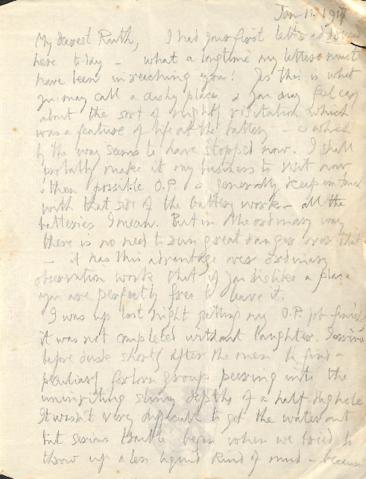 Jan 11. 1917
My dearest Ruth, I had your first letter
here today – what a long time my letters must
have been in reaching you! As this is what
you may call a cushy place & you may feel easy
about the sort of nightly visitation which
was a feature of life at the battery – & which
by the way seems to have stopped now. I shall
probably make it my business to visit now
& then possible O.P.s & generally keep in touch
with that side of the battery work – all the
batteries I mean. But in the ordinary way
there is no need to run great dangers over that
– it has this advantage over ordinary
observation work that if you dislike a place
you are perfectly free to leave it.
I was up last night getting my O.P. job finished
It was not completed without laughter. I arrived
before dusk shortly after the men to find a
peculiarly forlorn group peering into the
uninviting slimy depths of a half dug hole
It wasn't very difficult to get the water out
but serious trouble began when we tried to
throw up a less liquid kind of mud – because